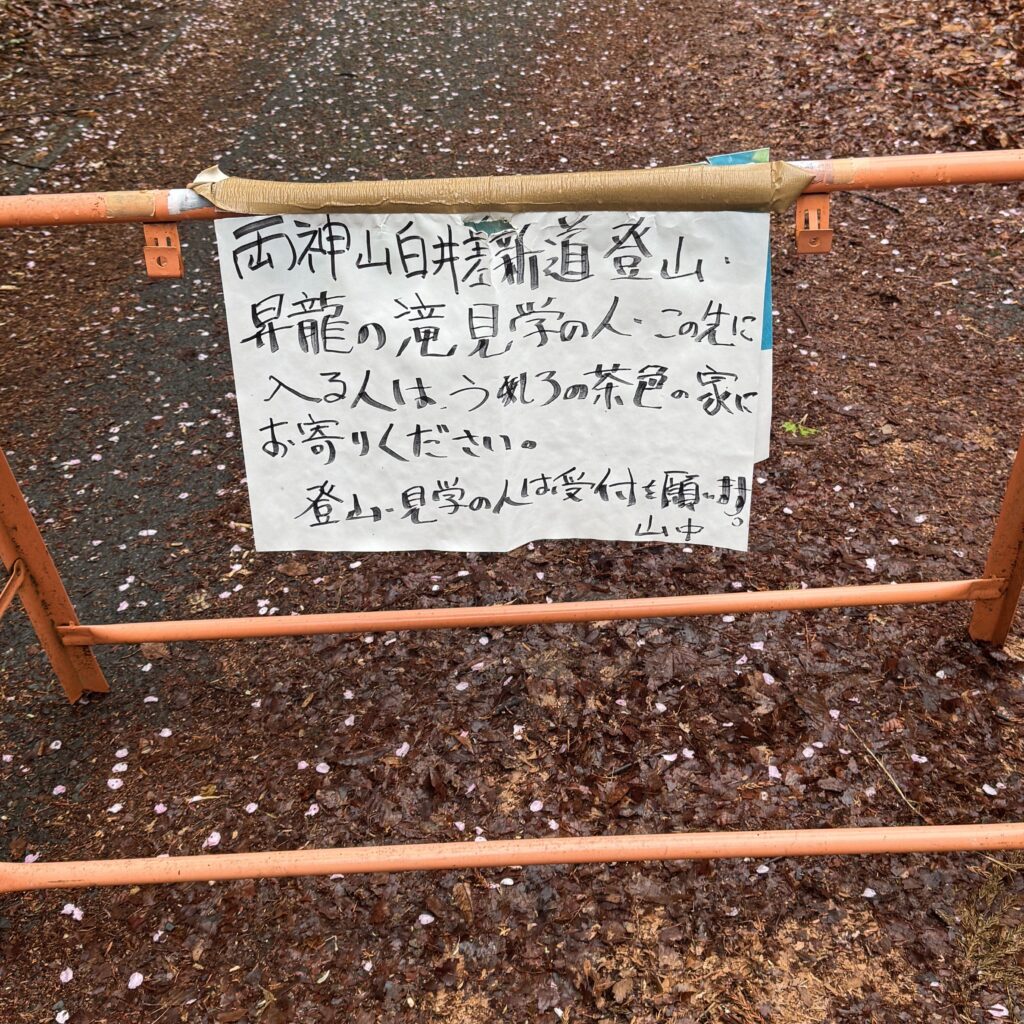 両神山白井差新道登山・
昇龍の滝見学の人・この先に
入る人は、うしろの茶色の家に
お寄りください。
登山・見学の人は受付を願います。
山中